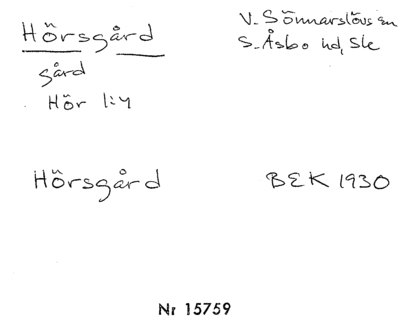 Hörsgård
V. Sönnarslövs sn
S. Åsbo hd, Sk
gård
Hör 1:4
Hörsgård
BEK 1930
Nr 15759